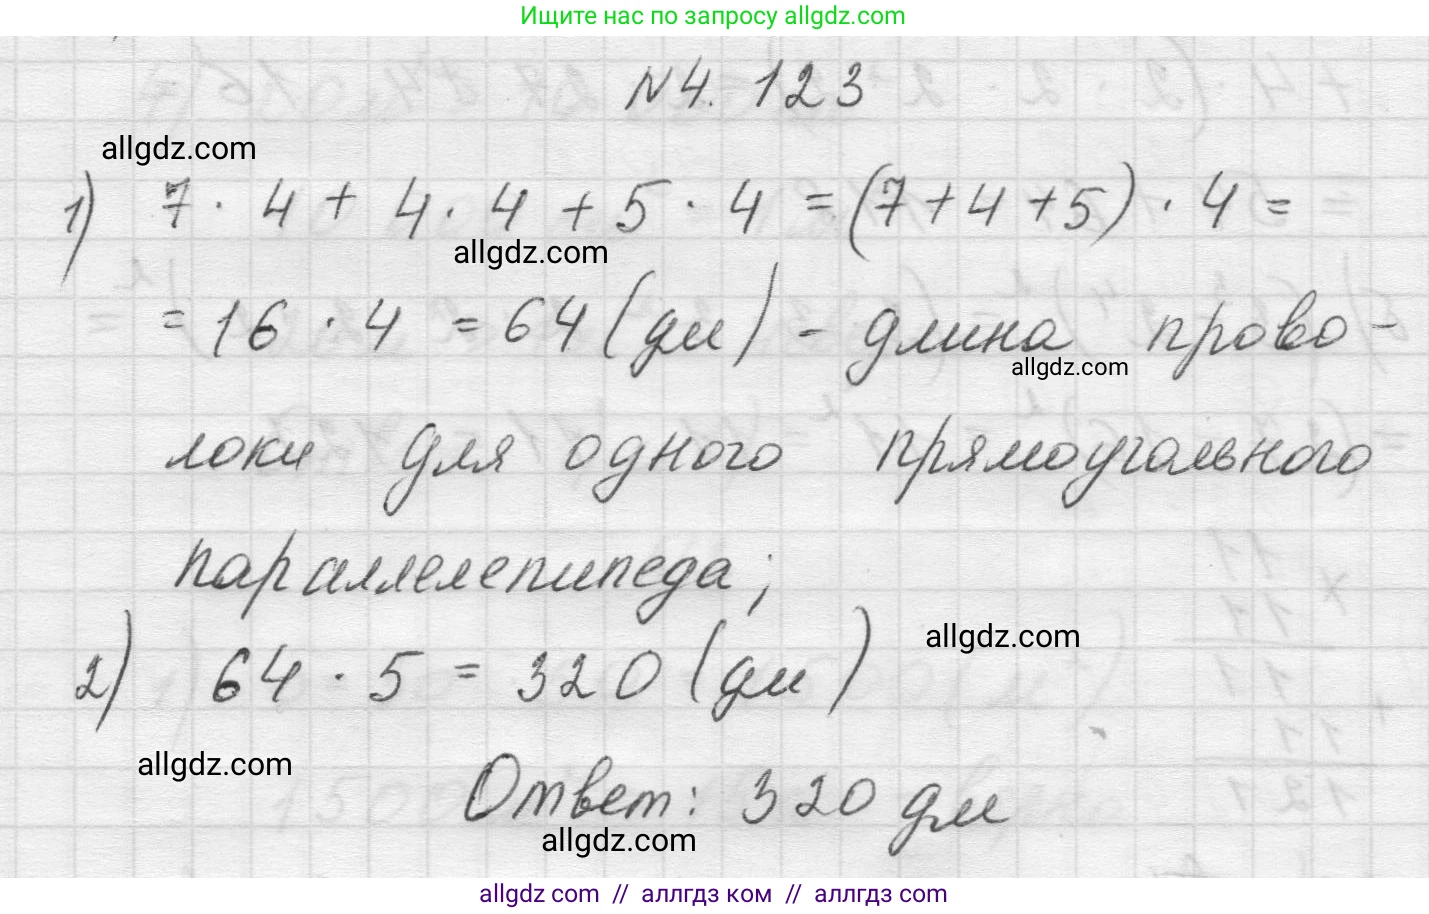 Ищите нас по запросу allgdz.com
№4.123
allgdz.com
1) 7 · 4 + 4 · 4 + 5 · 4 = (7+4+5) · 4 =
allgdz.com
= 16 · 4 = 64 (дм) - длина прово-
allgdz.com
локи для одного прямоугольного
параллелепипеда;
2) 64 · 5 = 320 (дм)
allgdz.com
allgdz.com
Ответ: 320 дм
allgdz.com
allgdz com // аллгдз ком // аллгдз com